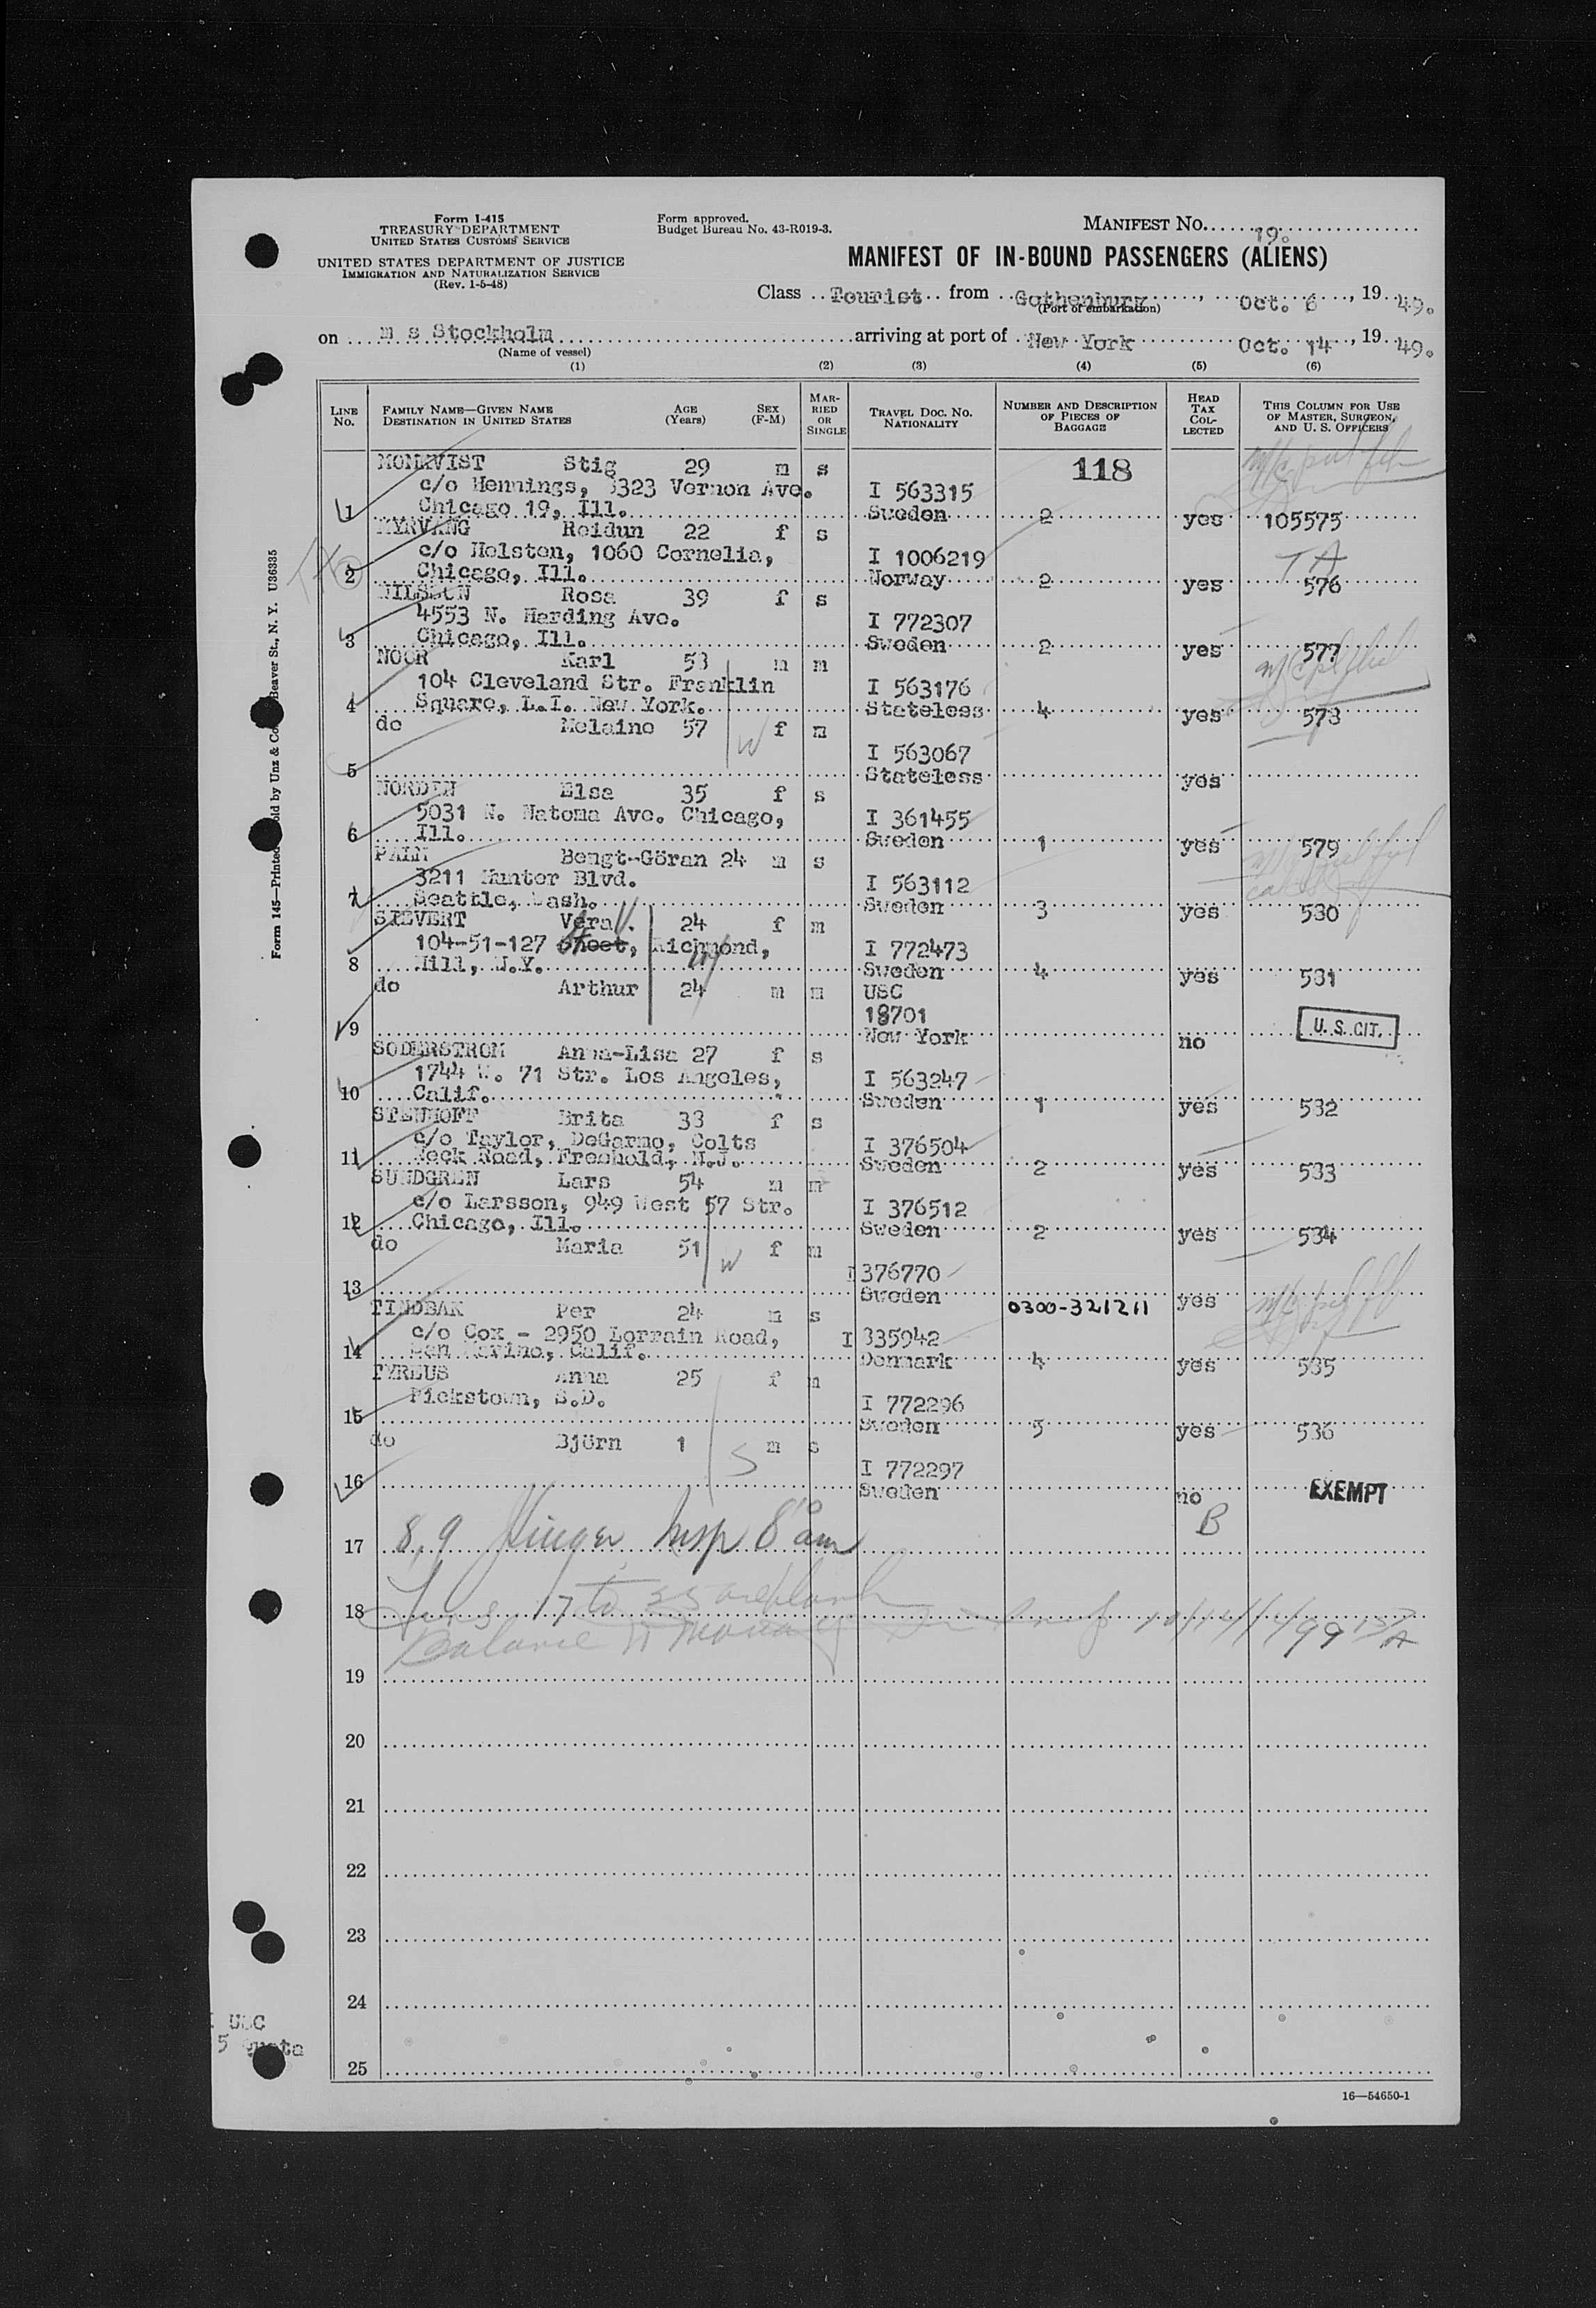 Form I-415
TREASURY DEPARTMENT
UNITED STATES CUSTOMS SERVICE
UNITED STATES DEPARTMENT OF JUSTICE
IMMIGRATION AND NATURALIZATION SERVICE
(Rev. 1-5-48)
Form approved.
Budget Bureau No. 43-R019-3.
MANIFEST No. 19.
MANIFEST OF IN-BOUND PASSENGERS (ALIENS)
Class Tourist from Gothenburg, Oct. 6, 19 49.
(Port of embarkation)
on m s Stockholm arriving at port of New York Oct. 14, 19 49.
(Name of vessel)
(1) (2) (3) (4) (5) (6)
LINE No. FAMILY NAME—GIVEN NAME DESTINATION IN UNITED STATES AGE (Years) SEX (F-M) MARRIED OR SINGLE TRAVEL DOC. No. NATIONALITY NUMBER AND DESCRIPTION OF PIECES OF BAGGAGE HEAD TAX COLLECTED THIS COLUMN FOR USE OF MASTER, SURGEON, AND U. S. OFFICERS
118
Stig 29 m s
c/o Hennings, 3323 Vernon Ave. I 563315
1 Chicago 19, Ill. Sweden 2 yes 105575
MYRVANG Reidun 22 f s
c/o Helsten, 1060 Cornelia, I 1006219 TA
2 Chicago, Ill. Norway 2 yes 576
NILSSON Rosa 39 f s
4553 N. Harding Ave. I 772307
3 Chicago, Ill. Sweden 2 yes 577
NOOR Karl 53 m m
104 Cleveland Str. Franklin I 563176
4 Square, L.I. New York. Stateless 4 yes 578
do Melaine 57 f m
W I 563067
5 Stateless yes
NORDEN Elsa 35 f s
5031 N. Natoma Ave. Chicago, I 361455
6 Ill. Sweden 1 yes 579
PALM Bengt-Göran 24 m s
3211 Hunter Blvd. I 563112
7 Seattle, Wash. Sweden 3 yes 580
SIEVERT Vera V. 24 f m
104-51-127 Street, Richmond, I 772473
8 Hill, N.Y. Sweden 4 yes 581
do Arthur 24 m m USC
18701
9 New York no U. S. CIT.
SODERSTROM Anna-Lisa 27 f s
1744 W. 71 Str. Los Angeles, I 563247
10 Calif. Sweden 1 yes 582
STENHOFF Brita 33 f s
c/o Taylor, DeGarmo, Colts I 376504
11 Neck Road, Freehold, N.J. Sweden 2 yes 583
SUNDGREN Lars 54 m m
c/o Larsson, 949 West 57 Str. I 376512
12 Chicago, Ill. Sweden 2 yes 584
do Maria 51 f m
W I 376770
13 Sweden 0300-321211 yes
TINDBAK Per 24 m s
c/o Cox - 2950 Lorrain Road, I 335942
14 San Marino, Calif. Denmark 4 yes 585
TYREUS Anna 25 f m
Pickstown, S.D. I 772296
15 Sweden 5 yes 586
do Björn 1 m s
S I 772297
16 Sweden no EXEMPT
B
17 8, 9 Insp 8 am
18
Balance
19
20
21
22
23
24
25
USC
5 Quota
16—54650-1
Beaver St., N. Y. U36335
Form 145—Printed